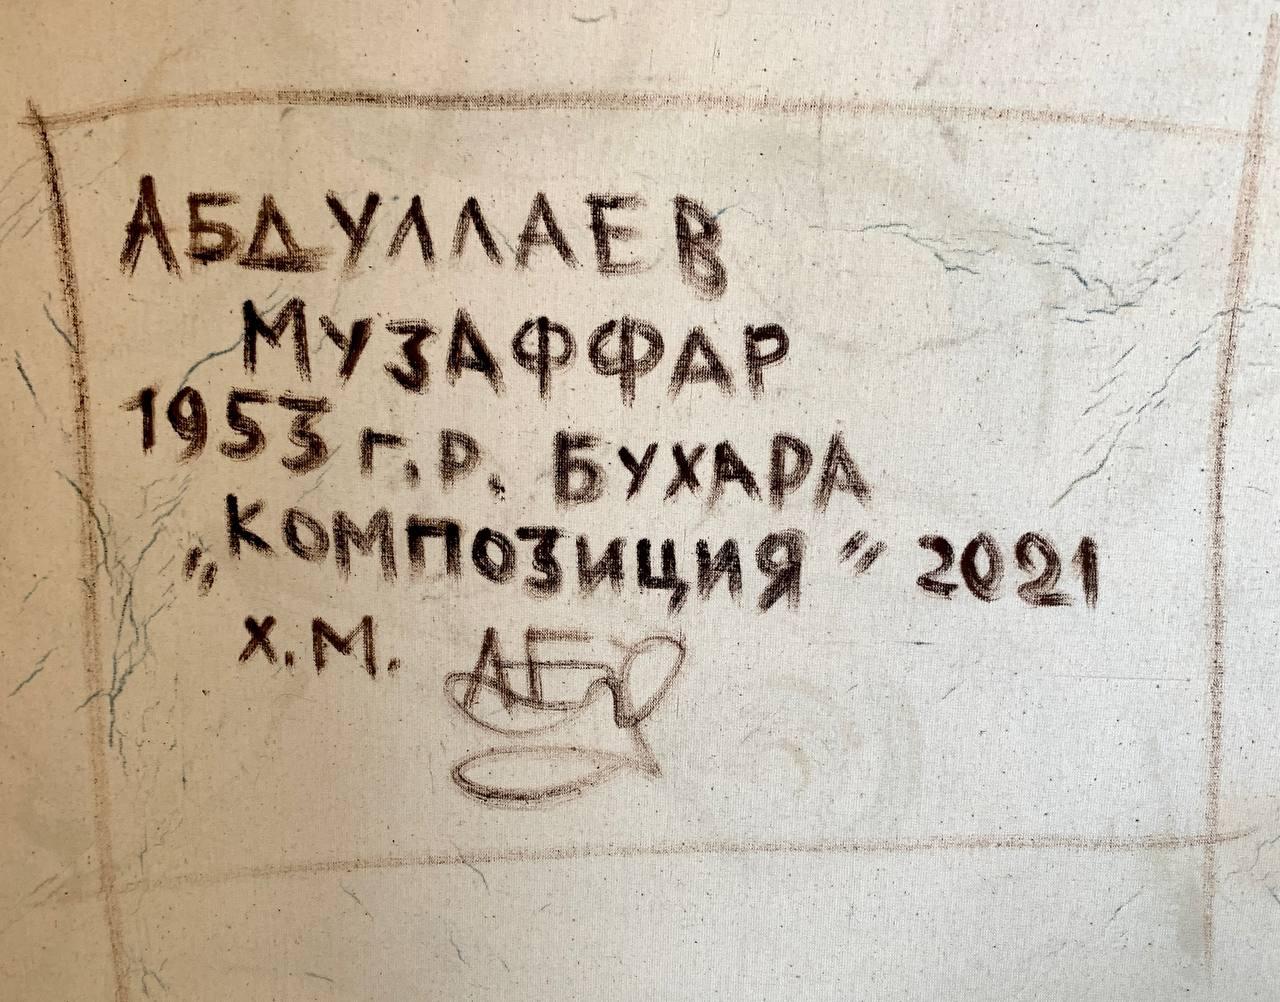 АБДУЛЛАЕВ
МУЗАФФАР
1953 г.р. БУХАРА
„КОМПОЗИЦИЯ" 2021
х.м.